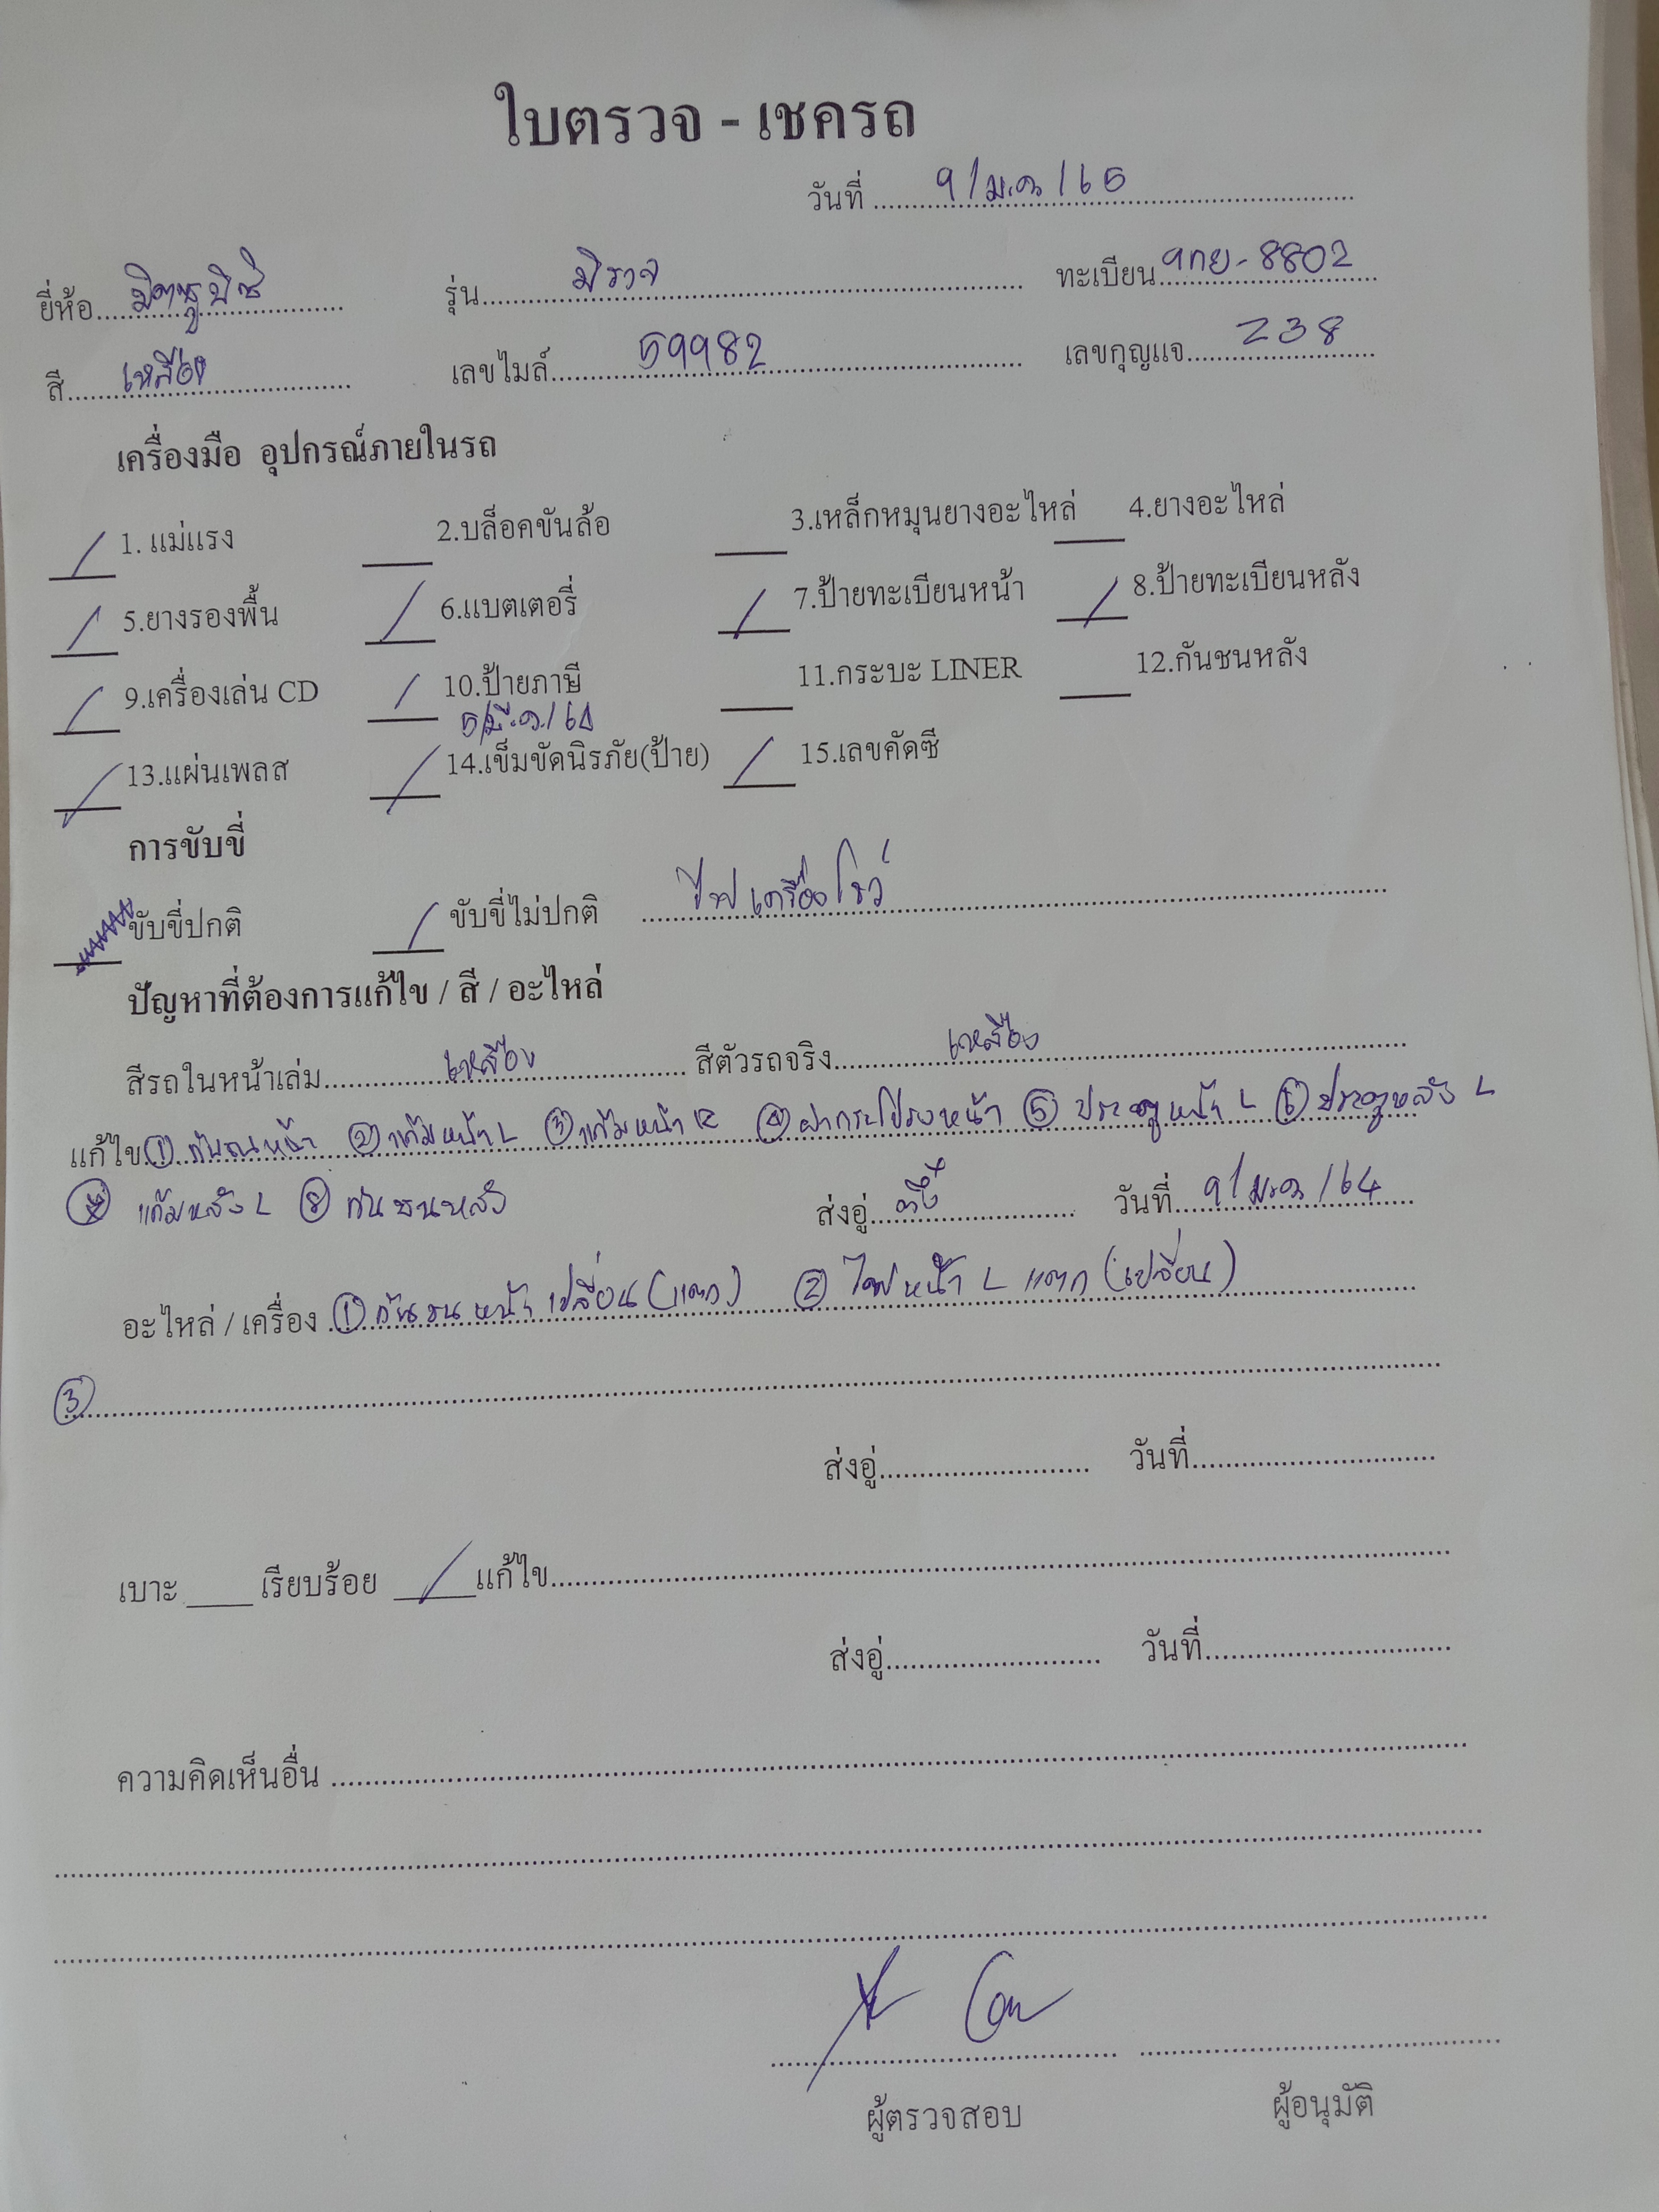 ใบตรวจ - เชครถ
วันที่ 9/ม.ค/65
ยี่ห้อ มิตซูบิซิ รุ่น มิราจ ทะเบียน 9กย-8802
สี เหลือง เลขไมล์ 59982 เลขกุญแจ 238
เครื่องมือ อุปกรณ์ภายในรถ
/ 1. แม่แรง 2.บล็อคขันล้อ 3.เหล็กหมุนยางอะไหล่ 4.ยางอะไหล่
/ 5.ยางรองพื้น / 6.แบตเตอรี่ / 7.ป้ายทะเบียนหน้า / 8.ป้ายทะเบียนหลัง
/ 9.เครื่องเล่น CD / 10.ป้ายภาษี 11.กระบะ LINER 12.กันชนหลัง
/ 13.แผ่นเพลส / 14.เข็มขัดนิรภัย(ป้าย) / 15.เลขคัดซี
การขับขี่
ขับขี่ปกติ / ขับขี่ไม่ปกติ ไฟเครื่องโชว์
ปัญหาที่ต้องการแก้ไข / สี / อะไหล่
สีรถในหน้าเล่ม เหลือง สีตัวรถจริง เหลือง
แก้ไข ① กันชนหน้า ② แก้มหน้า L ③ แก้มหน้า R ④ ฝากระโปรงหน้า ⑤ ประตูหน้า L ⑥ ประตูหลัง L
แก้มหลัง L ⑧ กันชนหลัง ส่งอู่ วันที่ 9/ม.ค/64
อะไหล่ / เครื่อง ① กันชนหน้า เปลี่ยน (แตก) ② ไฟหน้า L แตก (เปลี่ยน)
③
ส่งอู่ วันที่
เบาะ เรียบร้อย / แก้ไข
ส่งอู่ วันที่
ความคิดเห็นอื่น
ผู้ตรวจสอบ ผู้อนุมัติ